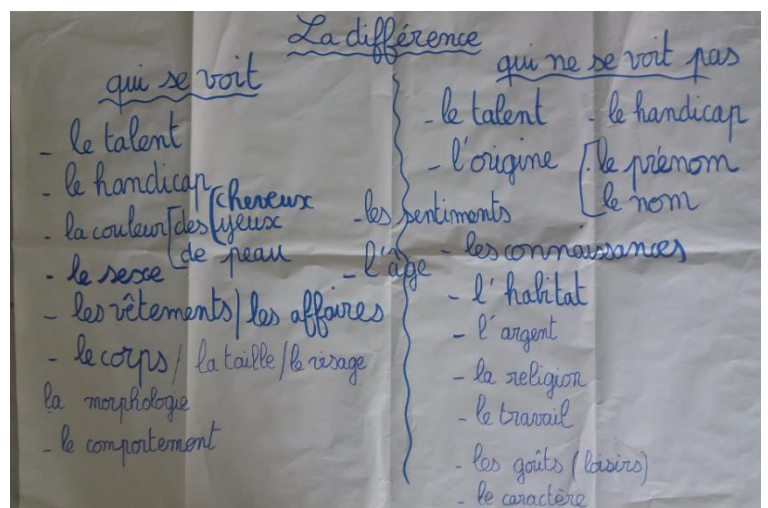 La différence
qui se voit
- le talent
- le handicap
- la couleur des cheveux
yeux
de peau
- le sexe
- les vêtements / les affaires
- le corps / la taille / le visage
la morphologie
- le comportement
- les sentiments
- l'âge
qui ne se voit pas
- le talent - le handicap
- l'origine le prénom
le nom
- les connaissances
- l'habitat
- l'argent
- la religion
- le travail
- les goûts (loisirs)
- le caractère